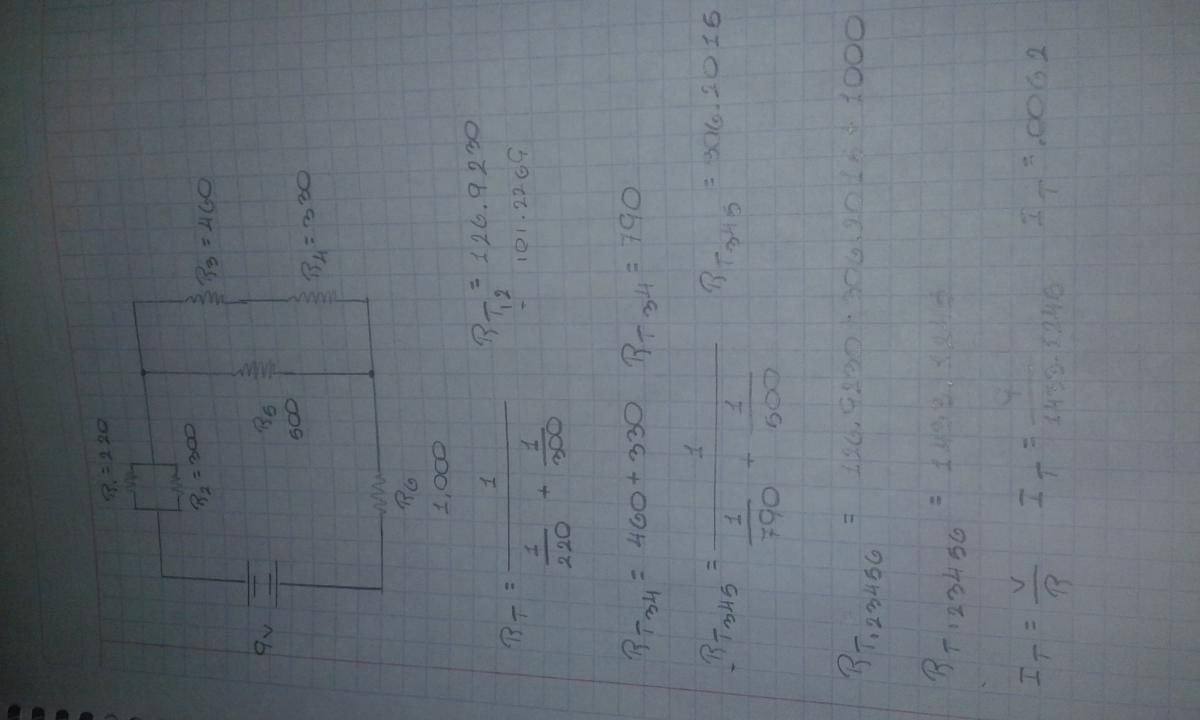 9v
R1=220
R2=300
R5
500
R3=460
R4=330
R6
1,000
RT = 1 / (1/220 + 1/300)
RT12 = 126.9230
101.2269
RT34 = 460+330 RT34 = 790
RT345 = 1 / (1/790 + 1/500) RT345 = 306.2015
RT123456 = 126.9230 + 306.2015 + 1000
RT123456 =
IT = V/R IT = 9 / IT = .0062